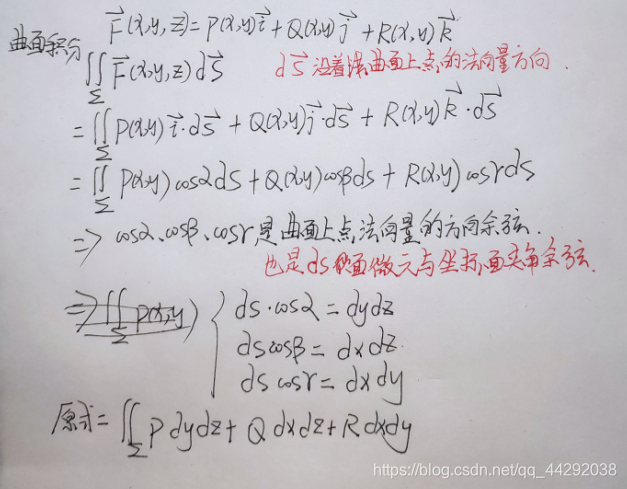 F⃗(x,y,z)=P(x,y)i⃗+Q(x,y)j⃗+R(x,y)k⃗
曲面积分
∬_Σ F⃗(x,y,z)dS⃗ dS⃗沿着该曲面上点的法向量方向.
=∬_Σ P(x,y)i⃗·dS⃗+Q(x,y)j⃗·dS⃗+R(x,y)k⃗·dS⃗
=∬_Σ P(x,y)cosαdS+Q(x,y)cosβds+R(x,y)cosrds
=> cosα、cosβ、cosr,是曲面上点法向量的方向余弦.
也是ds面微元与坐标面夹角余弦.
=>∬_Σ P(x,y) { ds·cosα=dydz
dscosβ=dxdz.
dscosr=dxdy
原式=∬_Σ Pdydz+Qdxdz+Rdxdy
https://blog.csdn.net/qq_44292038